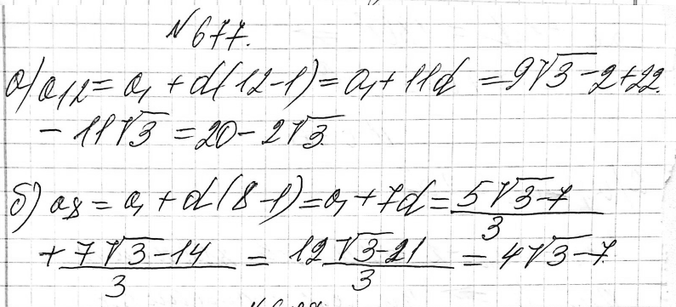 №677.
а) a₁₂ = a₁ + d(12-1) = a₁ + 11d = 9√3 - 2 + 22
- 11√3 = 20 - 2√3.
б) a₈ = a₁ + d(8-1) = a₁ + 7d = (5√3-7)/3
+ (7√3-14)/3 = (12√3-21)/3 = 4√3-7.